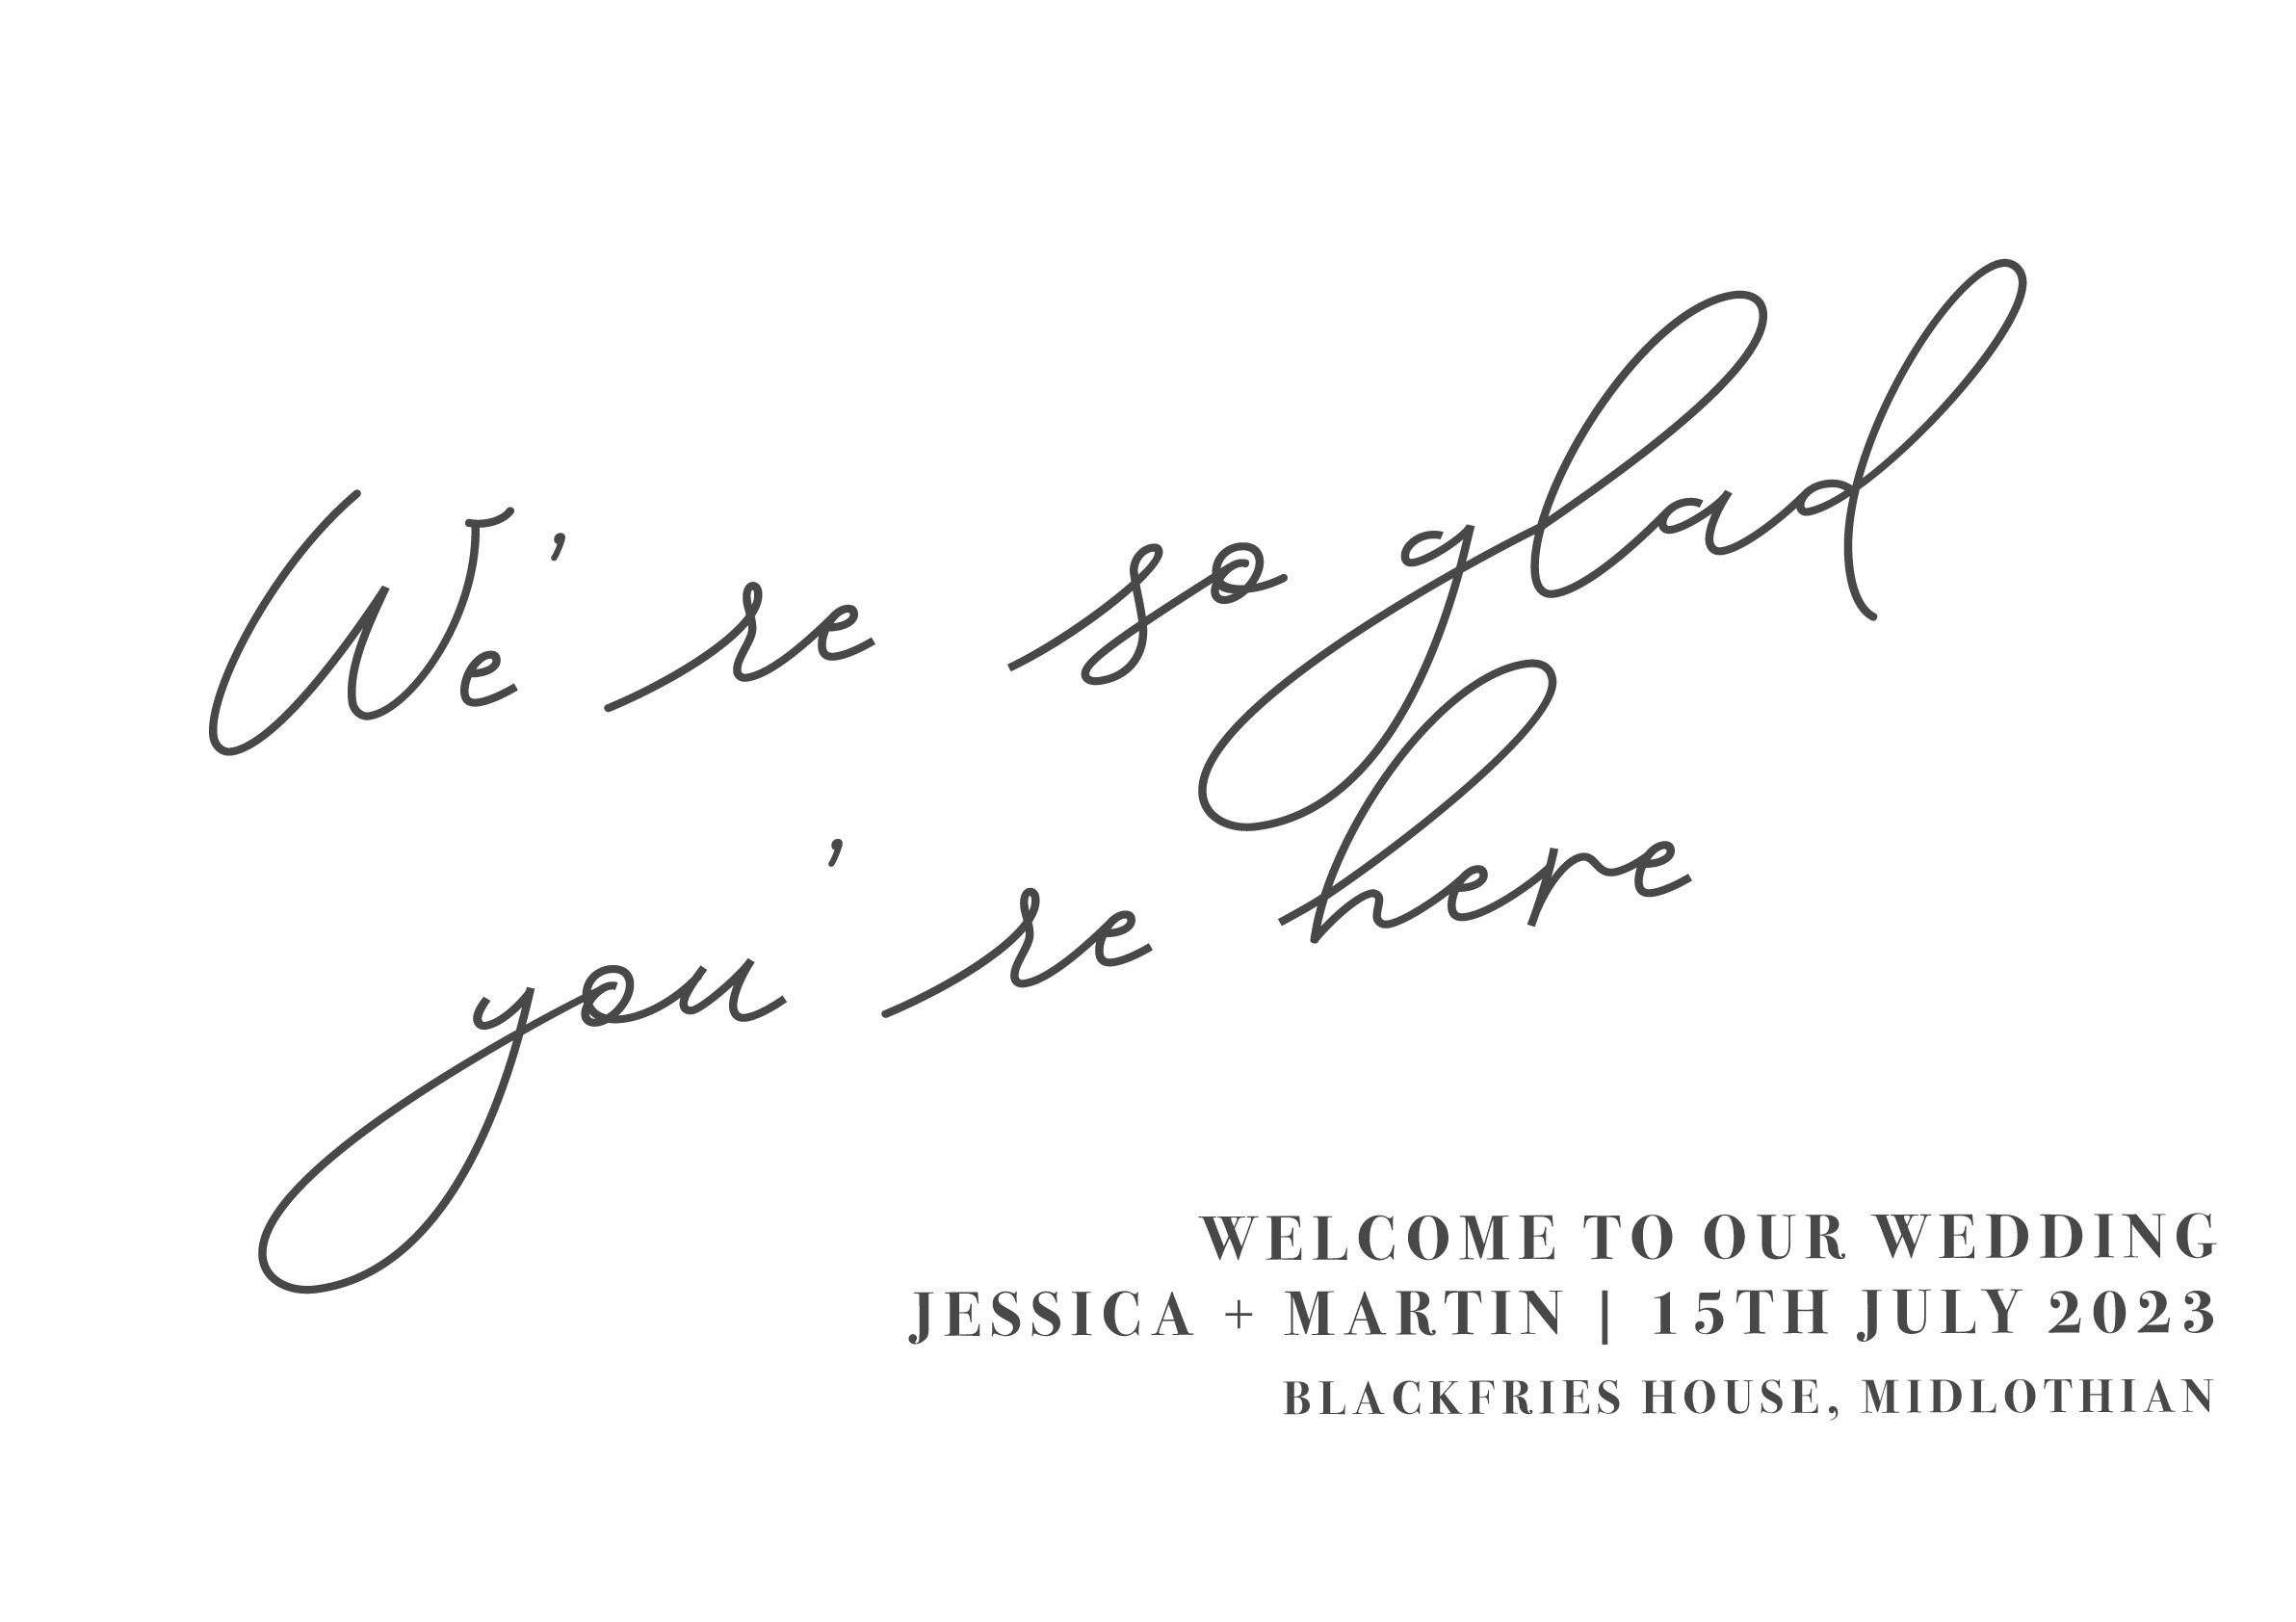 We're so glad
you're here
WELCOME TO OUR WEDDING
JESSICA + MARTIN | 15TH JULY 2023
BLACKFRIES HOUSE, MIDLOTHIAN